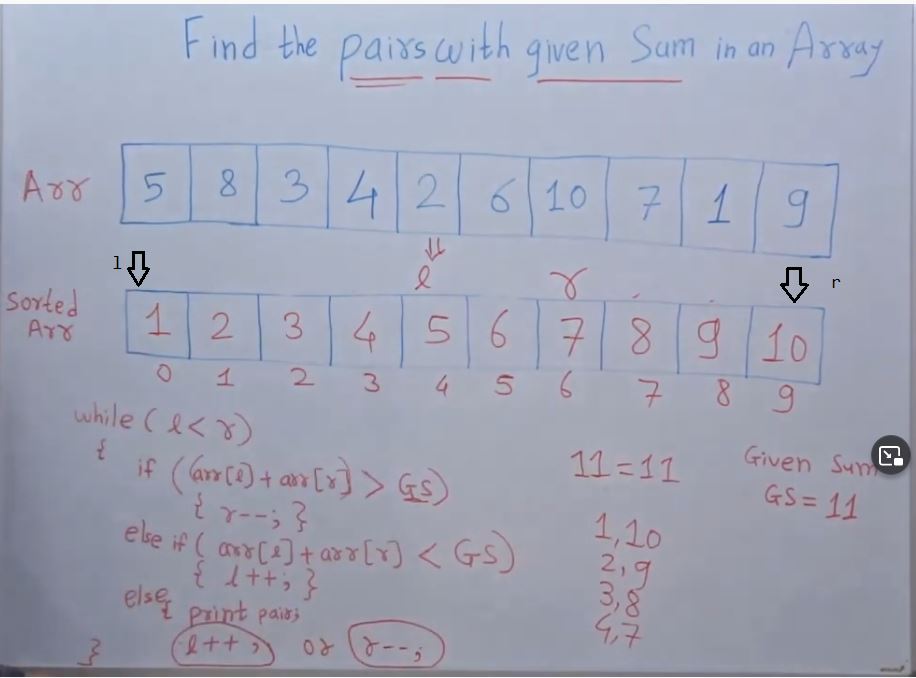 Find the pairs with given Sum in an Array
Arr 5 8 3 4 2 6 10 7 1 9
l l r r
Sorted
Arr
1 2 3 4 5 6 7 8 9 10
0 1 2 3 4 5 6 7 8 9
while ( l < r )
{
if ( (arr[l] + arr[r]) > GS)
{ r--; }
else if ( arr[l] + arr[r] < GS)
{ l++; }
else
{ print pairs
l++; or r--;
}
11 = 11
1,10
2,9
3,8
4,7
Given Sum
GS = 11